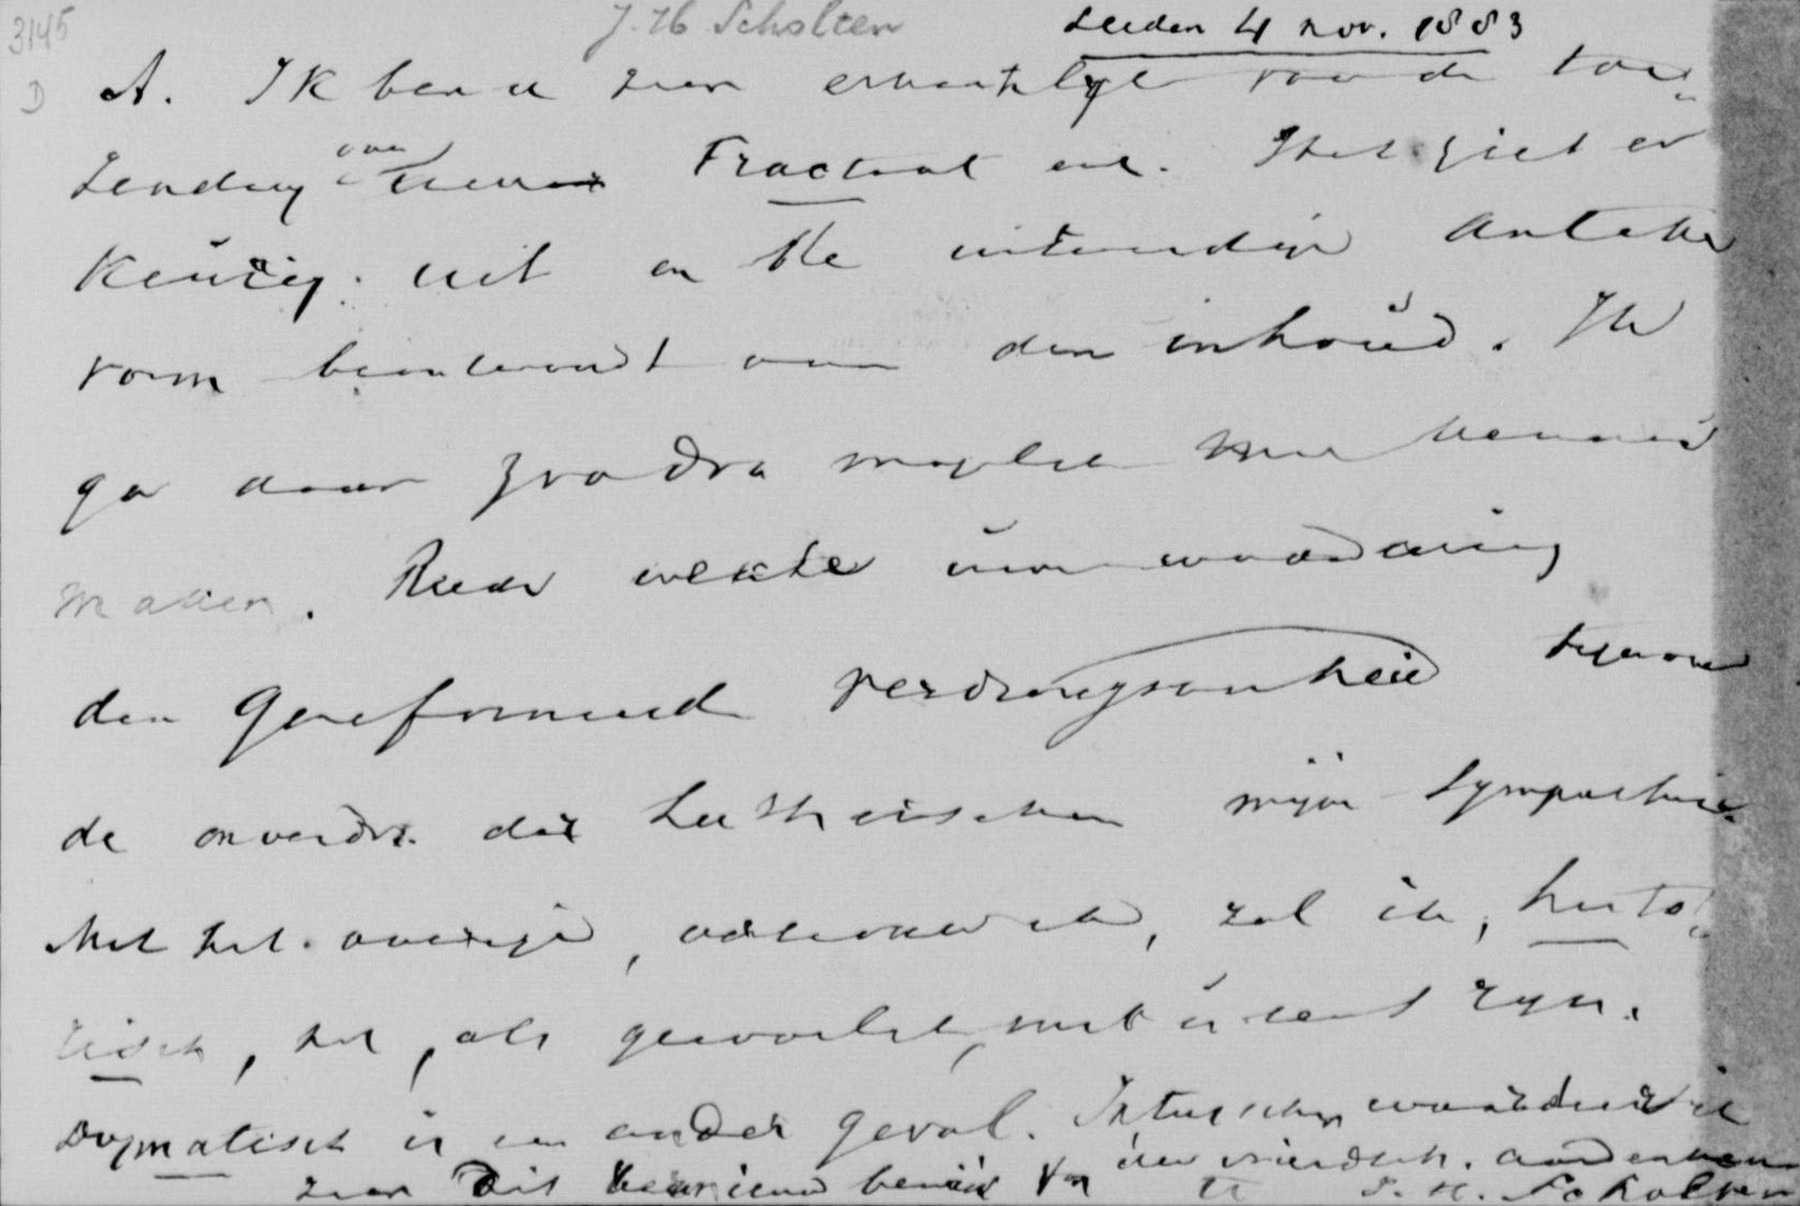 3145
J. H. Scholten
Leiden 4 nov. 1883
D
A. Ik ben u zeer erkentelijk voor de toe„
zending van uwe Tractaat enz. Het ziet er
keurig uit en de uitwendige
vorm beantwoordt aan den inhoud. Ik
ga daar zoodra mogelijk mee kennis
maken. Reeds wekte uw waardering
den Gereformeerde verdraagzaamheid tegenover
de onverdr. der Lutherschen mijne sympathie.
Met het overige, vertrouw ik, zal ik, histo„
risch, het, als gewoonlijk, met u eens zijn.
Dogmatisch is een ander geval. Intusschen waardeer ik
zeer dit bewijs van uw vriendsch. aandenken
U J. H. Scholten